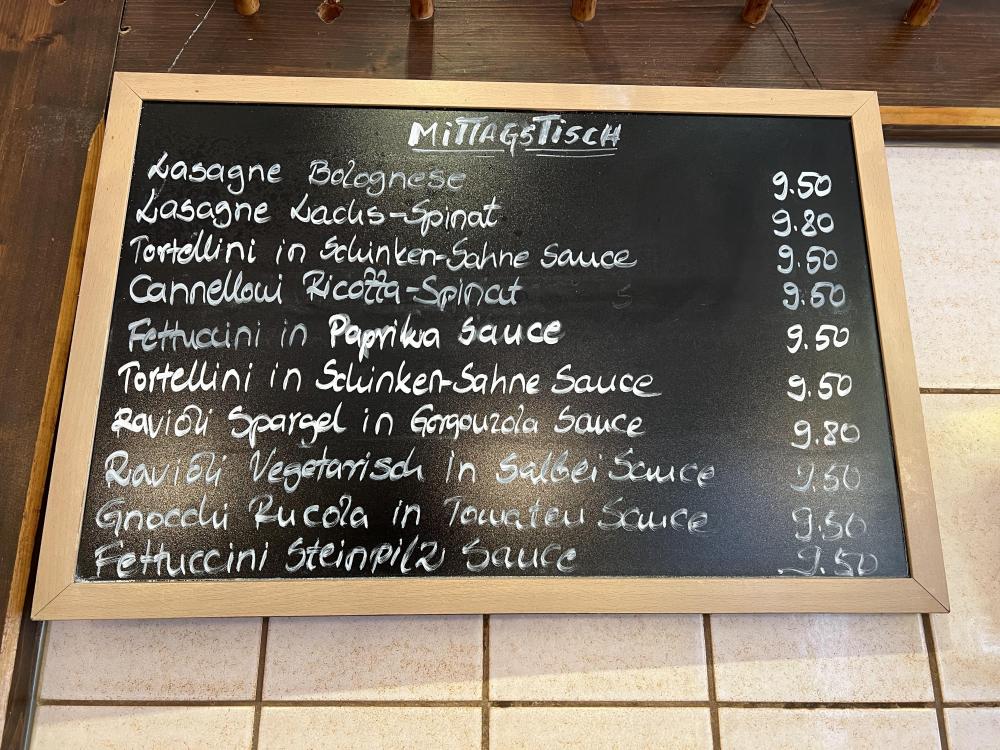 MITTAGSTISCH
Lasagne Bolognese 9.50
Lasagne Lachs-Spinat 9.80
Tortellini in Schinken-Sahne Sauce 9.50
Cannelloni Ricotta-Spinat 9.50
Fettuccini in Paprika Sauce 9.50
Tortellini in Schinken-Sahne Sauce 9.50
Ravioli Spargel in Gorgonzola Sauce 9.80
Ravioli Vegetarisch in Salbei Sauce 9.50
Gnocchi Rucola in Tomaten Sauce 9.50
Fettuccini Steinpilz Sauce 9.50